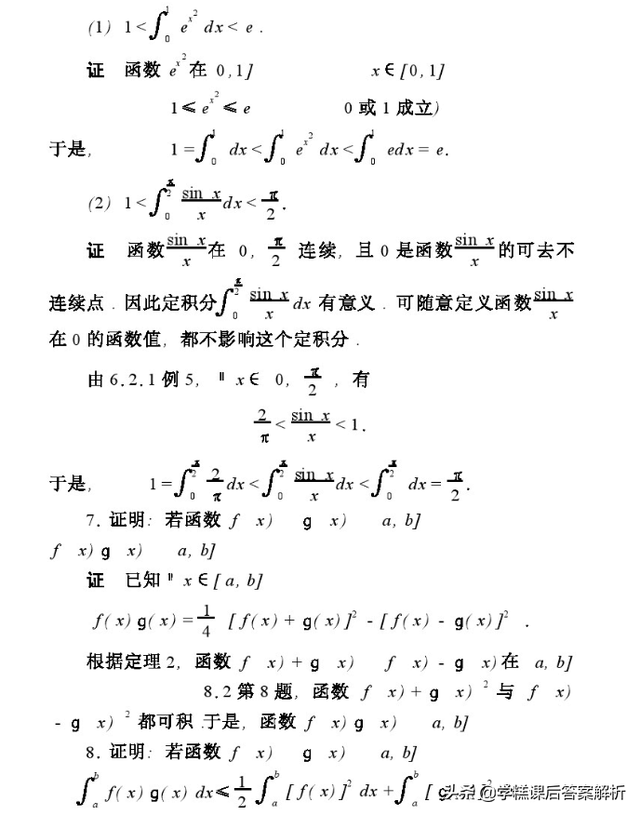 (1) 1<∫₀¹ e^{x²} dx<e.
证 函数 e^{x²} 在 0,1] x∈[0,1]
1≤e^{x²}≤e 0或1成立)
于是, 1=∫₀¹ dx<∫₀¹ e^{x²} dx<∫₀¹ edx=e.
(2) 1<∫₀^{π/2} sin x/x dx<π/2.
证 函数 sin x/x 在 0, π/2 连续, 且0是函数 sin x/x 的可去不
连续点. 因此定积分 ∫₀^{π/2} sin x/x dx 有意义. 可随意定义函数 sin x/x
在0的函数值, 都不影响这个定积分.
由6.2.1例5, x∈ 0, π/2 , 有
2/π<sin x/x<1.
于是, 1=∫₀^{π/2} 2/π dx<∫₀^{π/2} sin x/x dx<∫₀^{π/2} dx=π/2.
7. 证明: 若函数 f x) g x) a, b]
f x) g x) a, b]
证 已知 x∈[a, b]
f(x)g(x)=1/4 [f(x)+g(x)]²-[f(x)-g(x)]² .
根据定理2, 函数 f x)+g x) f x)-g x)在 a, b]
8.2第8题, 函数 f x)+g x) ²与 f x)
-g x) ²都可积.于是, 函数 f x) g x) a, b]
8. 证明: 若函数 f x) g x) a, b]
∫ₐᵇ f(x)g(x) dx≤1/2 ∫ₐᵇ [f(x)]² dx+∫ₐᵇ [g
头条@学糕课后答案解析